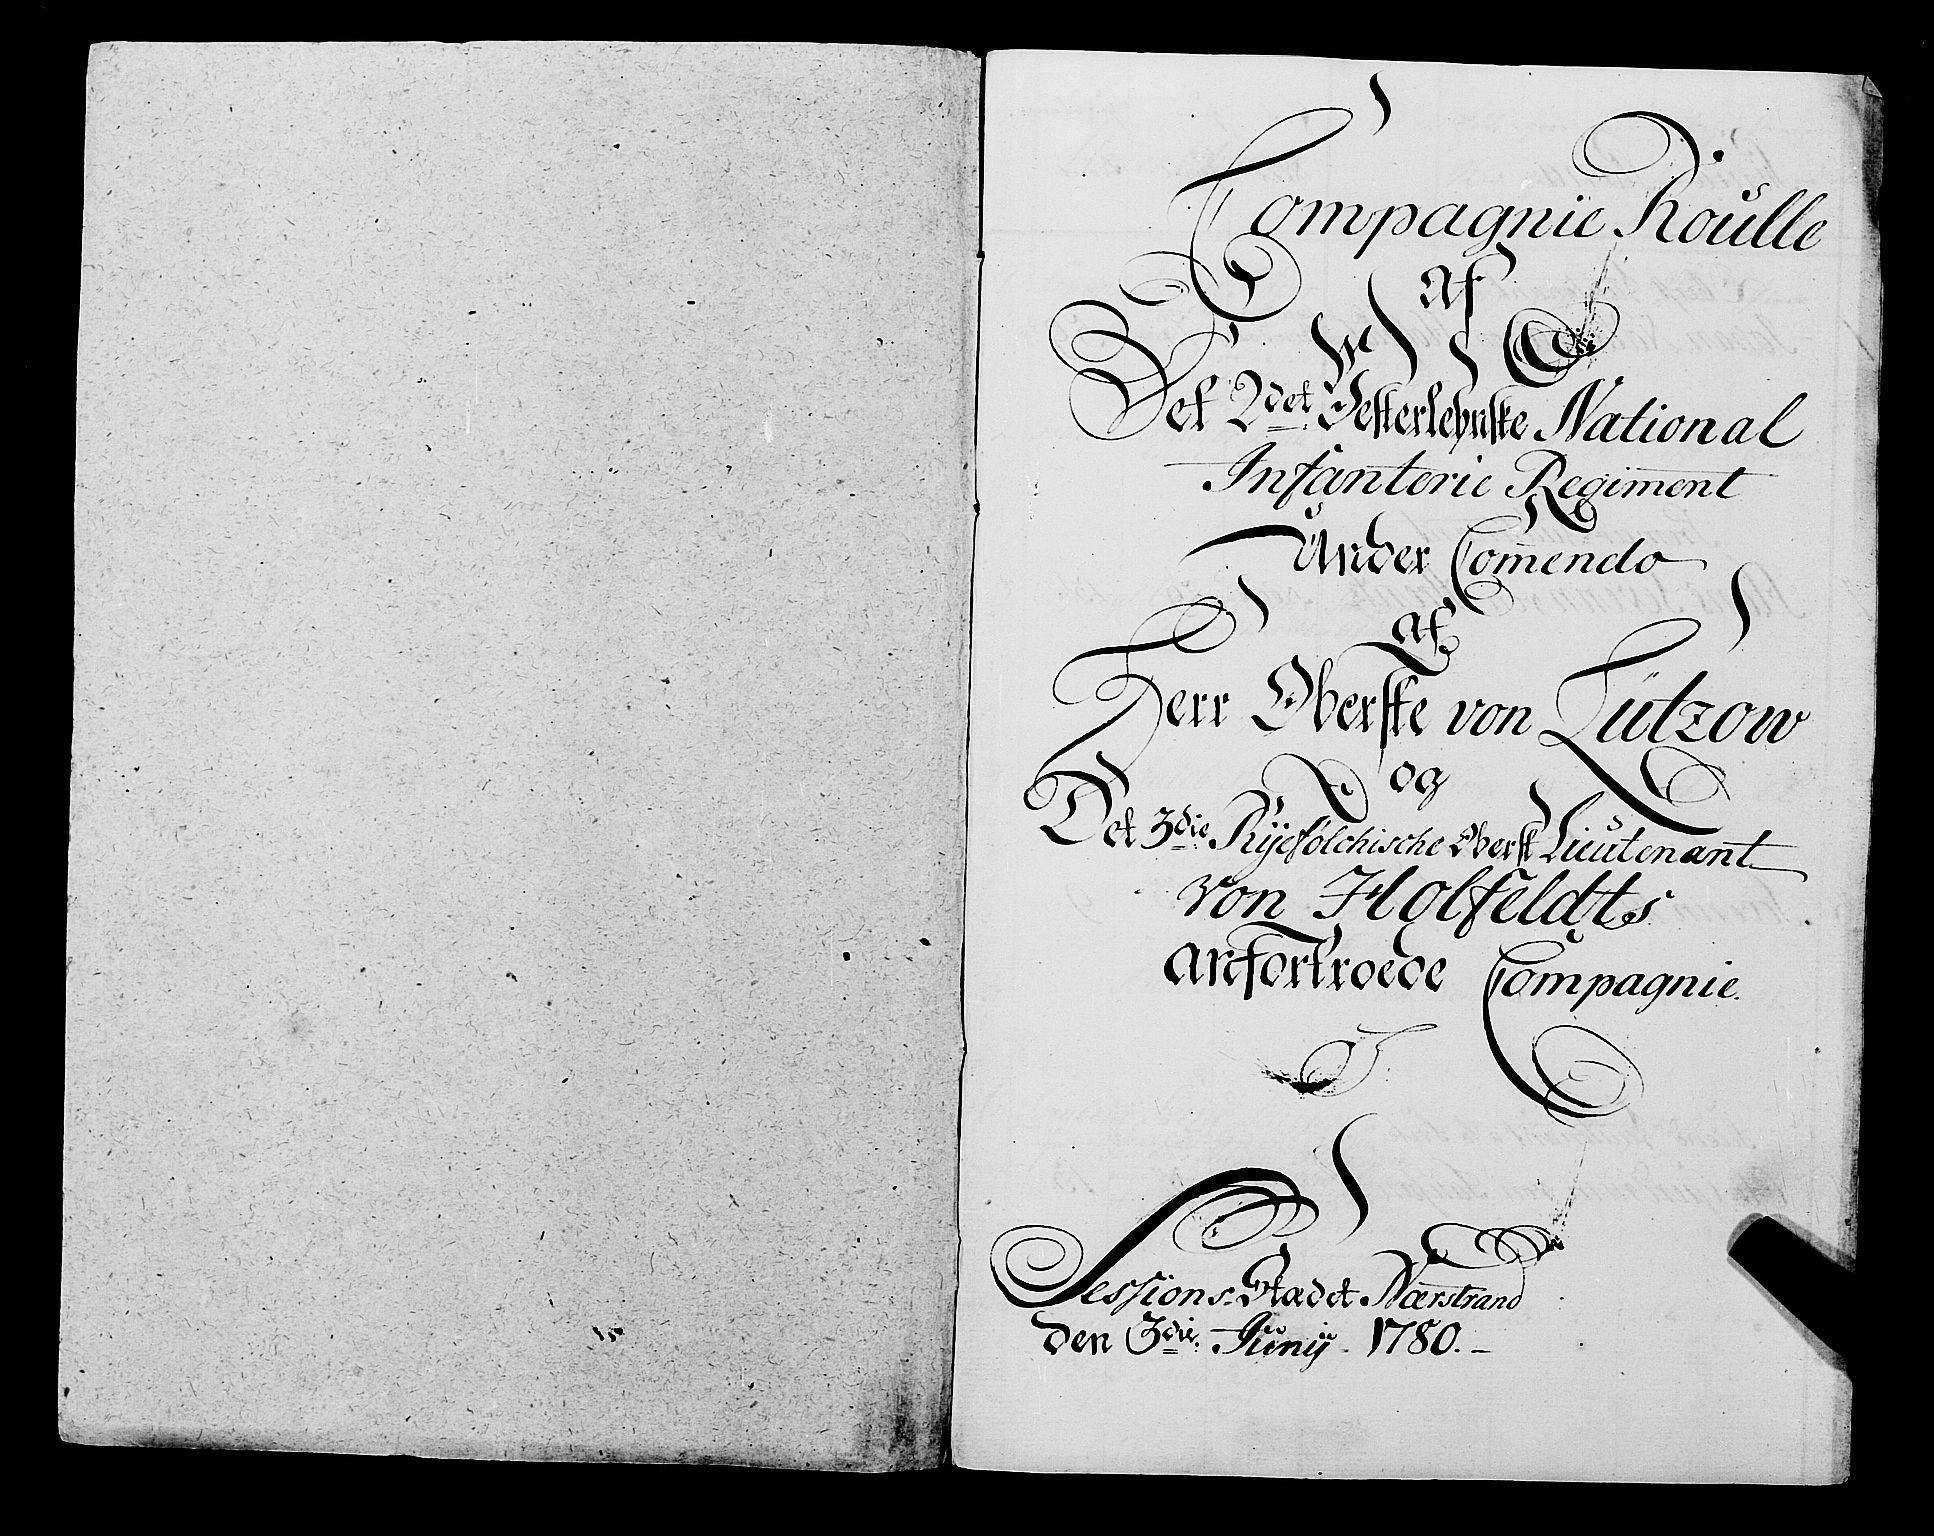 Compagnie Roulle
af
Det 2det Vesterlehnske National
Infanterie Regiment
Under Com̄endo
af
Herr Oberste von Lützow
og
Det 3die Ryefolchische Oberst Lieutenant
von Holfeldts
anfortroede Compagnie.
Sessions-Stædet Nærstrand
den 3die Junij 1780.